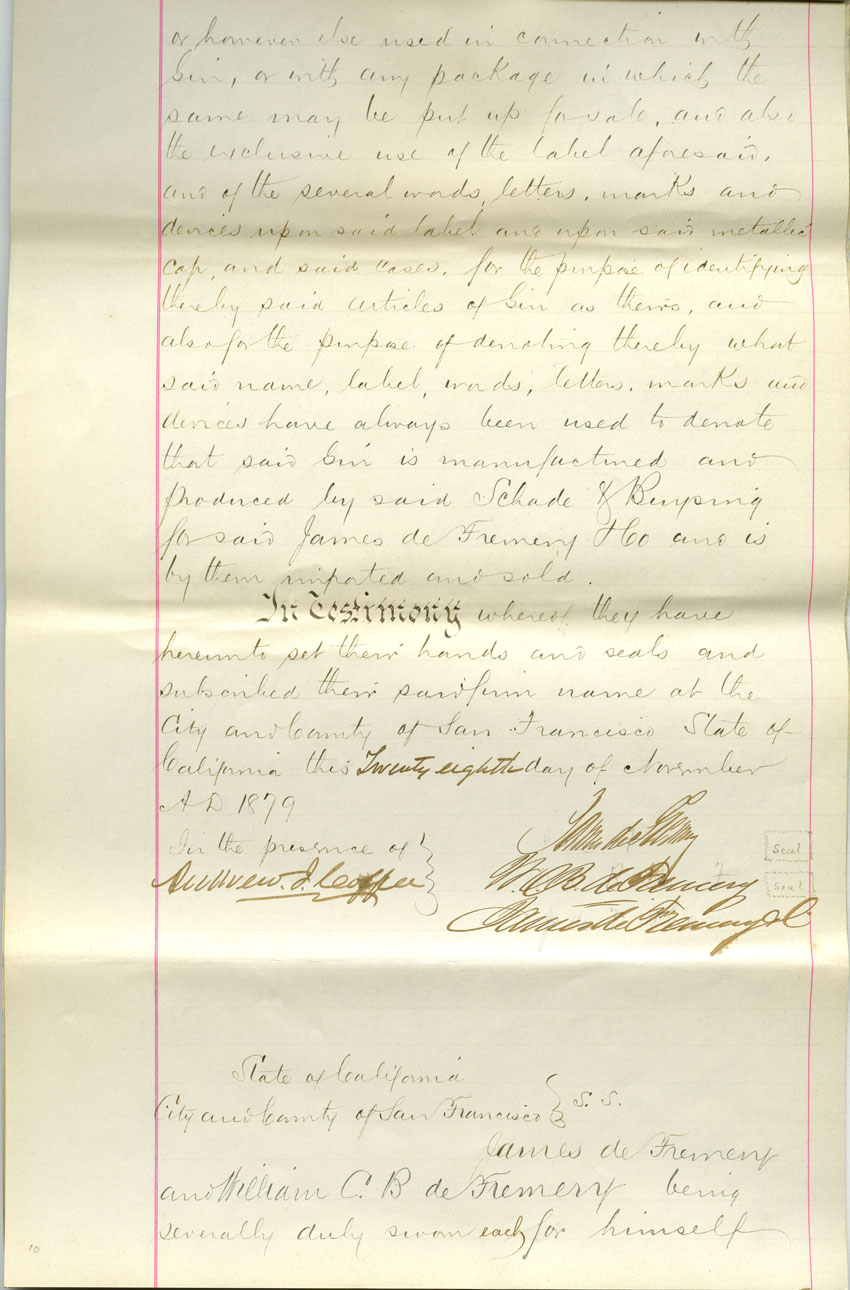 or however else used in connection with
Gin, or with any package in which the
same may be put up for sale, and also
the exclusive use of the label aforesaid,
and of the several words, letters, marks and
devices upon said label and upon said metallic
cap, and said cases, for the purpose of identifying
thereby said articles of Gin as theirs, and
also for the purpose of denoting thereby what
said name, label, words, letters, marks and
devices have always been used to denote
that said Gin is manufactured and
produced by said Schade & Buysing
for said James de Fremery & Co and is
by them imported and sold.
In Testimony whereof they have
hereunto set their hands and seals and
subscribed their said firm name at the
City and County of San Francisco State of
California this Twenty eighth day of November
A D 1879
In the presence of
Andrew. J. 
James de Fremery seal
W. C. B. de Fremery seal
James de Fremery & Co
State of California
City and County of San Francisco } S. S.
James de Fremery
and William C. B de Fremery being
severally duly sworn each for himself
10